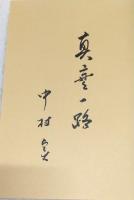 真実一路
中村